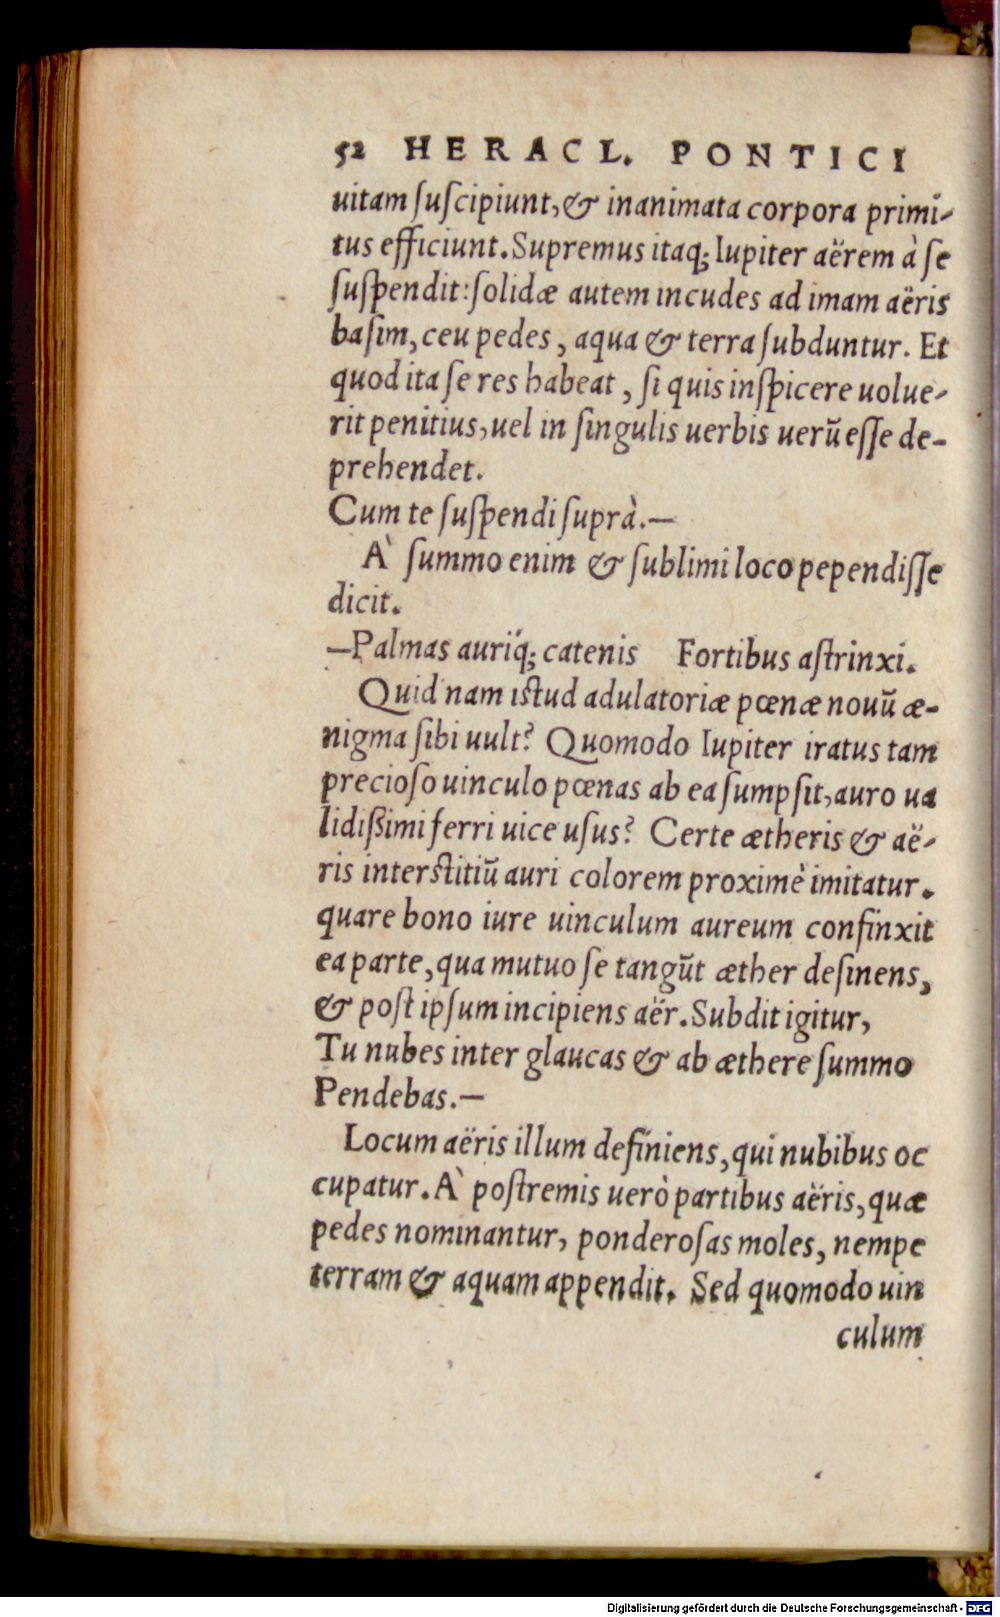 52 HERACL. PONTICI
uitam ſuſcipiunt, & inanimata corpora primi-
tus efficiunt. Supremus itaq; Iupiter aërem à ſe
ſuſpendit: ſolidæ autem incudes ad imam aëris
baſim, ceu pedes, aqua & terra ſubduntur. Et
quod ita ſe res habeat, ſi quis inſpicere uolue-
rit penitius, uel in ſingulis uerbis uerū eſſe de-
prehendet.
Cum te ſuſpendi ſuprà.—
À ſummo enim & ſublimi loco pependiſſe
dicit.
—Palmas auriq́; catenis Fortibus aſtrinxi.
Quid nam iſtud adulatoriæ pœnæ nouū æ-
nigma ſibi uult? Quomodo Iupiter iratus tam
precioſo uinculo pœnas ab ea ſumpſit, auro ua
lidißimi ferri uice uſus? Certe ætheris & aë-
ris interſtitiū auri colorem proximè imitatur.
quare bono iure uinculum aureum confinxit
ea parte, qua mutuo ſe tangūt æther deſinens,
& poſt ipſum incipiens aër. Subdit igitur,
Tu nubes inter glaucas & ab æthere ſummo
Pendebas.—
Locum aëris illum definiens, qui nubibus oc
cupatur. À poſtremis uerò partibus aëris, quæ
pedes nominantur, ponderoſas moles, nempe
terram & aquam appendit. Sed quomodo uin
culum
Digitalisierung gefördert durch die Deutsche Forschungsgemeinschaft - DFG